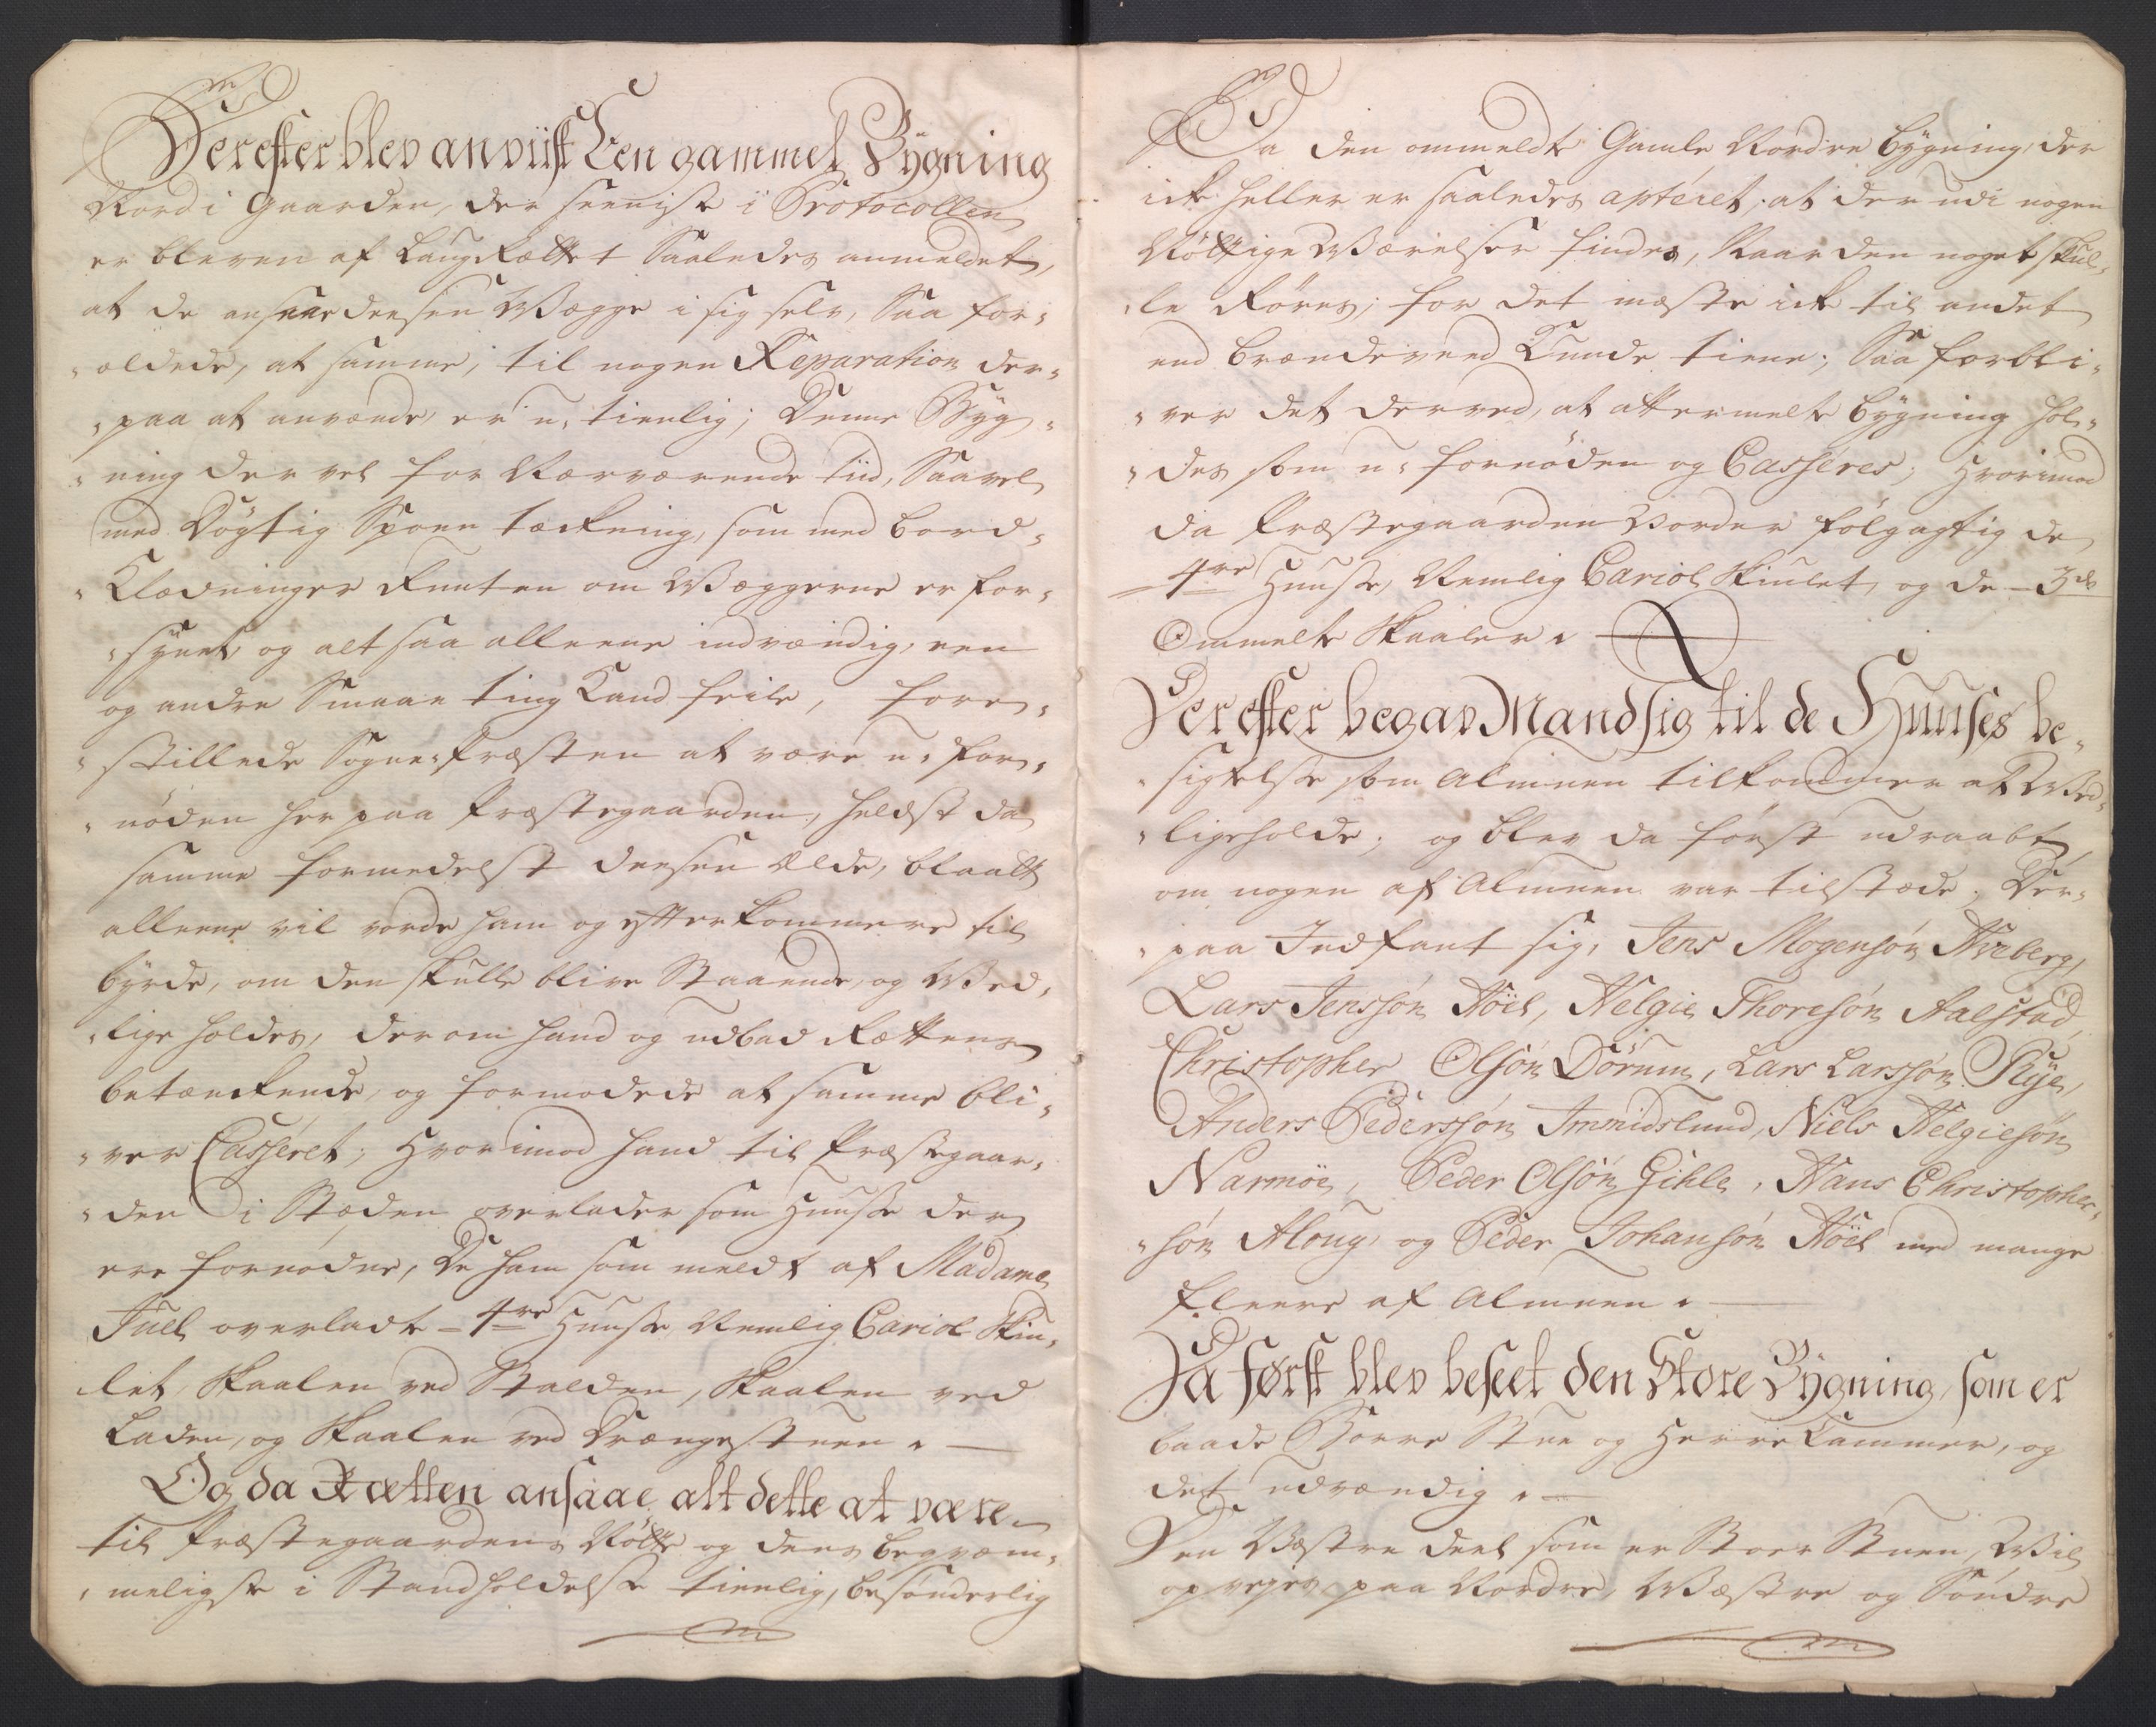 Derefter blev anviist Een gammel Bygning
Nord i Gaarden, der seeniste i Protocollen
er bleven af LaugRættet Saaledes anmeldet,
at de ansaae deesen Vægge i sig selv, Saa for-
-oldede, at samme, til nogen Reparation der-
-paa at anvænde er u-tienlig; Denne Byg-
-ning der vel for Nærværende tiid, Saavel
med Dögtig Spoen tækning, som med bord-
-Klædninger Runten om Væggerne er for-
-synet, og alt saa alleene indvændig, een
og anden Smaae ting Kand feile, fore-
-stillede Sogne-Præsten at være u-for-
-nöden her paa Præstegaarden, heldst da
samme formedelst deesen Ælde, blaatt
alleene vil vorde ham og efterkommere til
byrde, om den skulle blive Staaende, og Ved-
-lige holdes, derom hand og udbad Rættens
betænkende, og formodede at samme bli-
-ver Casseret; Hvorimod hand til Præstegaar-
-den i Stæden overlader som Huuse der
ere fornödne, De ham som meldt af Madame
Juel overladte - 4re Huuse, Nemlig Cariol Skiu-
-let, Skaalen ved Stalden, Skaalen ved
Laden, og Skaalen ved Drængestuen. —
Og da Rætten ansaae alt dette at være
til Præstegaardens Nötte og dens beqvem-
-meligste i Standholdelse tienlig, besönderlig
Da den ommeldte Gamle Nordre bygning, der
ick heller er saaledes aptéret, at der udi nogen
Nöttige Værelser findes, Naar den noget skul-
-le Röres, for det mæste ick til andet
end brændeveed Kunde tiene; Saa forbli-
-ver det derved, at attermelte bygning hol-
-des som u-fornöden og Casséres; Hvorimod
da Præstegaarden Vorder fölgagtig de
- 4re Huuse, Nemlig Cariol Skiulet, og de - 3de
Ommelte Skaaler. —
Derefter begav Mand sig til de Huuses be-
-sigtelse som Almuen tilkommer at Ved-
-ligeholde; og blev da först udraabt,
om nogen af Almuen var tilstæde; Der-
-paa Indfant sig, Jens Mogensön Averberg,
Lars Jenssön Höel, Helgie Thoresön Aalstad,
Christopher Olsön Dörum, Lars Larssön Rye,
Anders Pederssön Immidslund, Niels Helgiesön
Narmöe, Peder Olsön Gihle, Hans Christopher-
-sön Aloug, og Peder Johansön Höel med mange
fleere af Almuen. —
Da først blev beseet den Store Bygning, som er
baade Borre Stue og Herre Kammer, og
det udvændig. —
Den Væstre deel som er Stor Stuen, Vil
op vejes paa Nordre, Væstre og Söndre